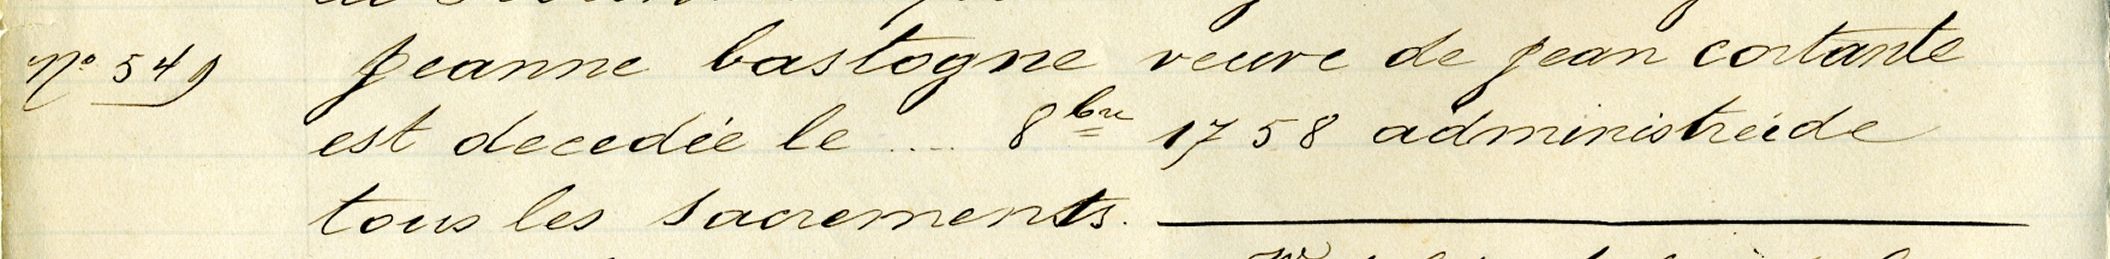 N° 549 Jeanne bastogne veuve de jean cortante
est decedée le .... 8bre 1758 administreéde
tous les sacrements.